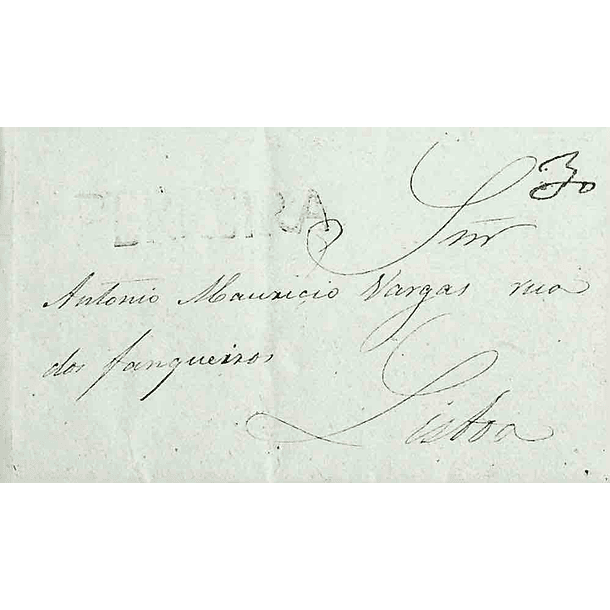 30
Snr
Antonio Mauricio Vargas rua
dos fanqueiros
Lisboa